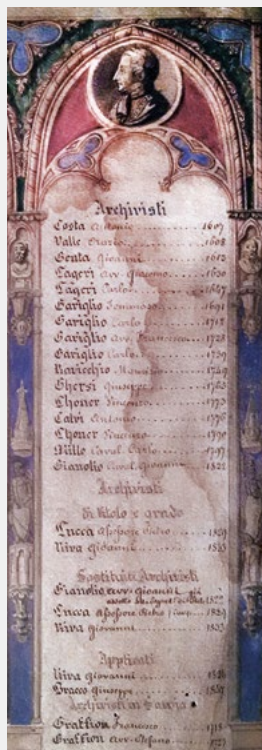 Archivisti
Costa Antonio 1607
Valle Orazio 1608
Genta Giovanni 1613
Tageri Avv. Giacomo 1630
Tageri Carlo 1647
Gariglio Tommaso 1691
Gariglio Carlo 1718
Gariglio Avv. Francesco 1728
Gariglio Carlo 1739
Maurizio 1749
Ghersi Giuseppe 1763
Choner Vincenzo
Calvi Antonio 1776
Choner Vincenzo 1790
Millo Caval. Carlo 1797
Gianolio Caval. Giovanni 1822
Archivisti
di titolo e grado
Lucca Assessore Pietro 1829
Riva Giovanni
Sostituti Archivisti
Gianolio Avv. Giovanni già
1822
Lucca Assessore Pietro 1829
Riva Giovanni 1833
Applicati
Riva Giovanni
Giuseppe
Archivisti in Savoia
Grattion Francesco 1718
Grattion Avv. Stefano